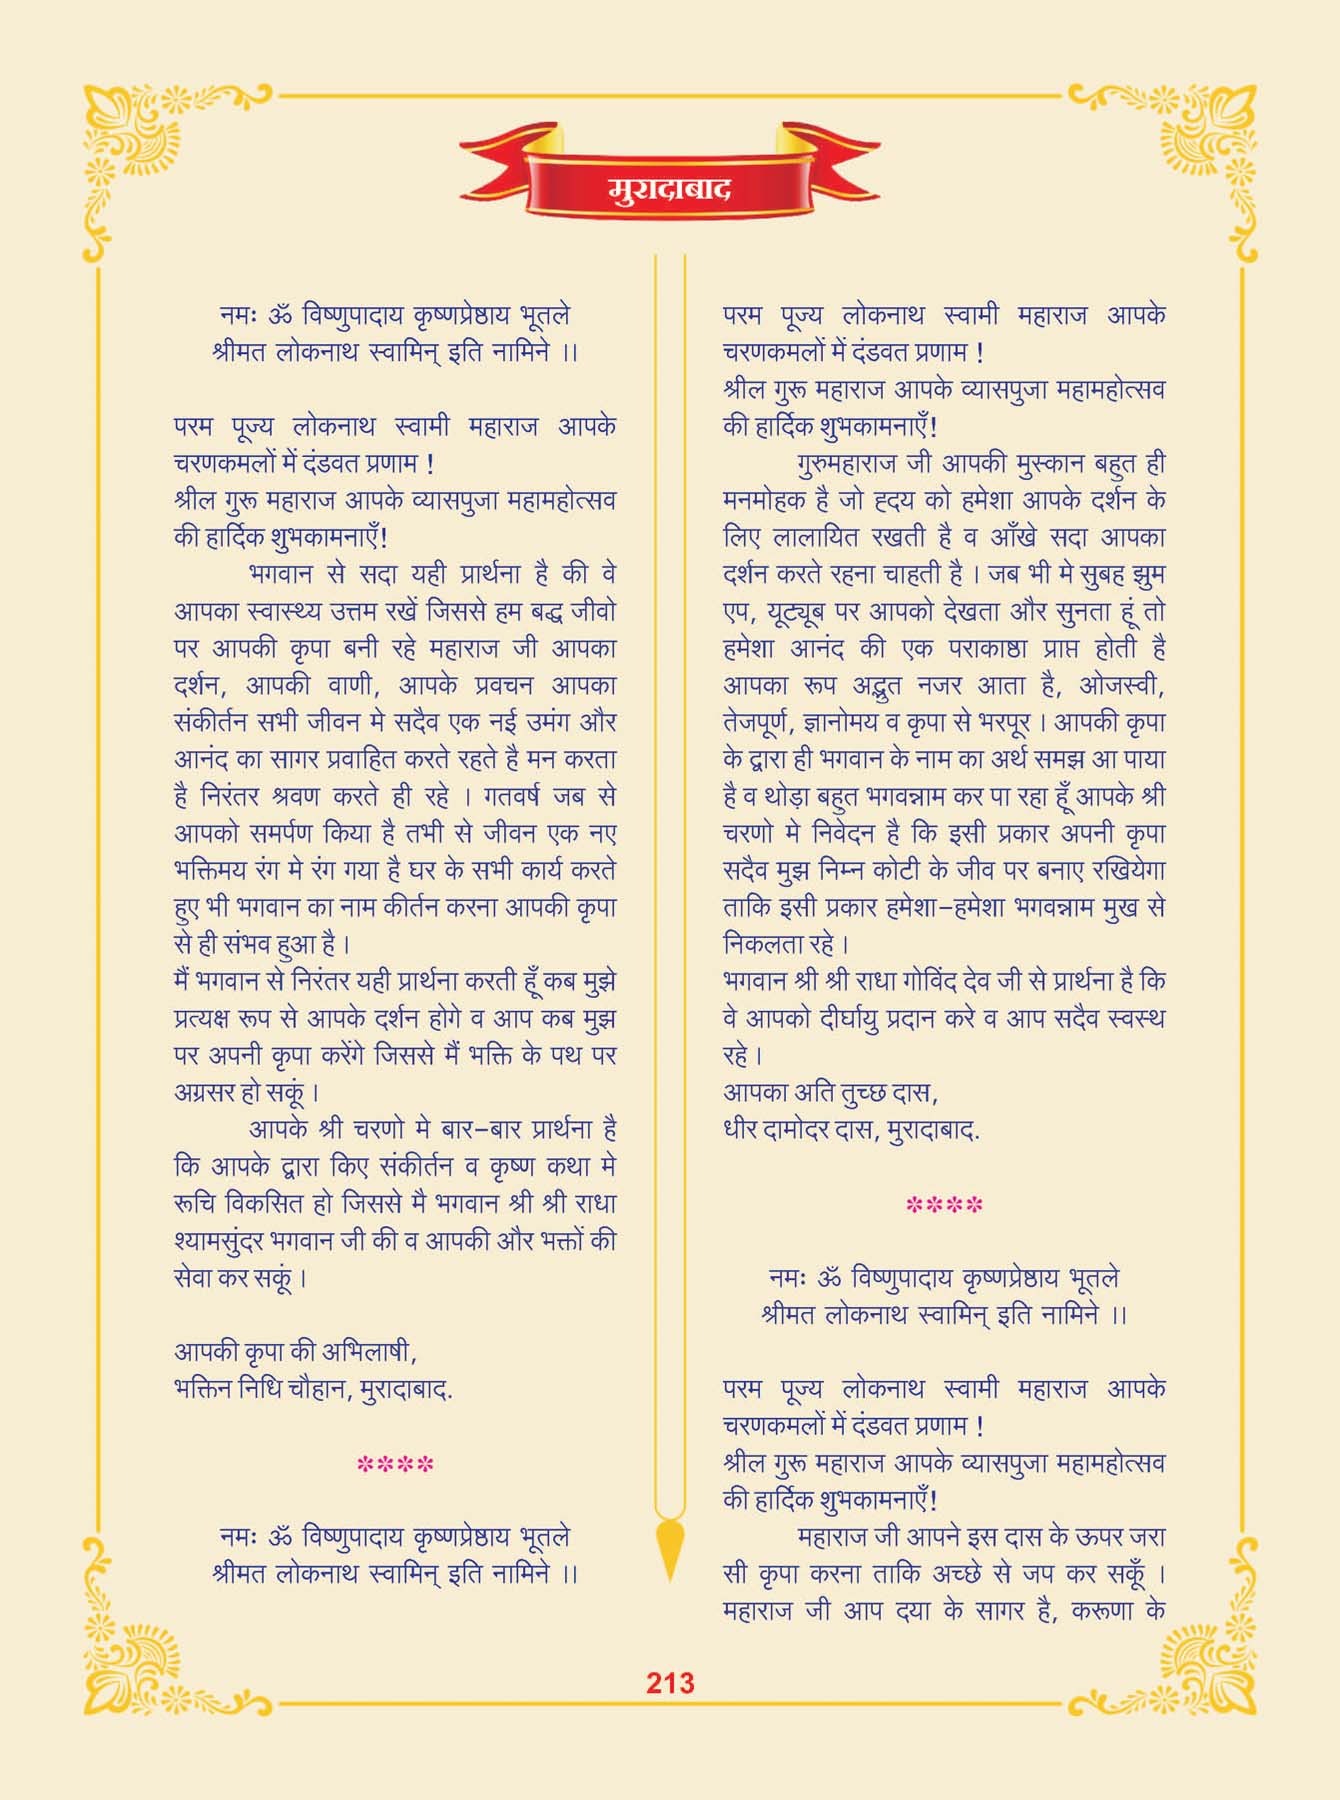 मुरादाबाद
नमः ॐ विष्णुपादाय कृष्णप्रेष्ठाय भूतले
श्रीमत लोकनाथ स्वामिन् इति नामिने ।।
परम पूज्य लोकनाथ स्वामी महाराज आपके
चरणकमलों में दंडवत प्रणाम !
श्रील गुरू महाराज आपके व्यासपुजा महामहोत्सव
की हार्दिक शुभकामनाएँ!
भगवान से सदा यही प्रार्थना है की वे
आपका स्वास्थ्य उत्तम रखें जिससे हम बद्ध जीवो
पर आपकी कृपा बनी रहे महाराज जी आपका
दर्शन, आपकी वाणी, आपके प्रवचन आपका
संकीर्तन सभी जीवन मे सदैव एक नई उमंग और
आनंद का सागर प्रवाहित करते रहते है मन करता
है निरंतर श्रवण करते ही रहे । गतवर्ष जब से
आपको समर्पण किया है तभी से जीवन एक नए
भक्तिमय रंग मे रंग गया है घर के सभी कार्य करते
हुए भी भगवान का नाम कीर्तन करना आपकी कृपा
से ही संभव हुआ है ।
मैं भगवान से निरंतर यही प्रार्थना करती हूँ कब मुझे
प्रत्यक्ष रूप से आपके दर्शन होगे व आप कब मुझ
पर अपनी कृपा करेंगे जिससे मैं भक्ति के पथ पर
अग्रसर हो सकूं ।
आपके श्री चरणो मे बार-बार प्रार्थना है
कि आपके द्वारा किए संकीर्तन व कृष्ण कथा मे
रूचि विकसित हो जिससे मै भगवान श्री श्री राधा
श्यामसुंदर भगवान जी की व आपकी और भक्तों की
सेवा कर सकूं ।
आपकी कृपा की अभिलाषी,
भक्तिन निधि चौहान, मुरादाबाद.
****
नमः ॐ विष्णुपादाय कृष्णप्रेष्ठाय भूतले
श्रीमत लोकनाथ स्वामिन् इति नामिने ।।
परम पूज्य लोकनाथ स्वामी महाराज आपके
चरणकमलों में दंडवत प्रणाम !
श्रील गुरू महाराज आपके व्यासपुजा महामहोत्सव
की हार्दिक शुभकामनाएँ!
गुरुमहाराज जी आपकी मुस्कान बहुत ही
मनमोहक है जो ह्दय को हमेशा आपके दर्शन के
लिए लालायित रखती है व आँखे सदा आपका
दर्शन करते रहना चाहती है । जब भी मे सुबह झुम
एप, यूट्यूब पर आपको देखता और सुनता हूं तो
हमेशा आनंद की एक पराकाष्ठा प्राप्त होती है
आपका रूप अद्भुत नजर आता है, ओजस्वी,
तेजपूर्ण, ज्ञानोमय व कृपा से भरपूर । आपकी कृपा
के द्वारा ही भगवान के नाम का अर्थ समझ आ पाया
है व थोड़ा बहुत भगवन्नाम कर पा रहा हूँ आपके श्री
चरणो मे निवेदन है कि इसी प्रकार अपनी कृपा
सदैव मुझ निम्न कोटी के जीव पर बनाए रखियेगा
ताकि इसी प्रकार हमेशा-हमेशा भगवन्नाम मुख से
निकलता रहे ।
भगवान श्री श्री राधा गोविंद देव जी से प्रार्थना है कि
वे आपको दीर्घायु प्रदान करे व आप सदैव स्वस्थ
रहे ।
आपका अति तुच्छ दास,
धीर दामोदर दास, मुरादाबाद.
****
नमः ॐ विष्णुपादाय कृष्णप्रेष्ठाय भूतले
श्रीमत लोकनाथ स्वामिन् इति नामिने ।।
परम पूज्य लोकनाथ स्वामी महाराज आपके
चरणकमलों में दंडवत प्रणाम !
श्रील गुरू महाराज आपके व्यासपुजा महामहोत्सव
की हार्दिक शुभकामनाएँ!
महाराज जी आपने इस दास के ऊपर जरा
सी कृपा करना ताकि अच्छे से जप कर सकूँ ।
महाराज जी आप दया के सागर है, करूणा के
213